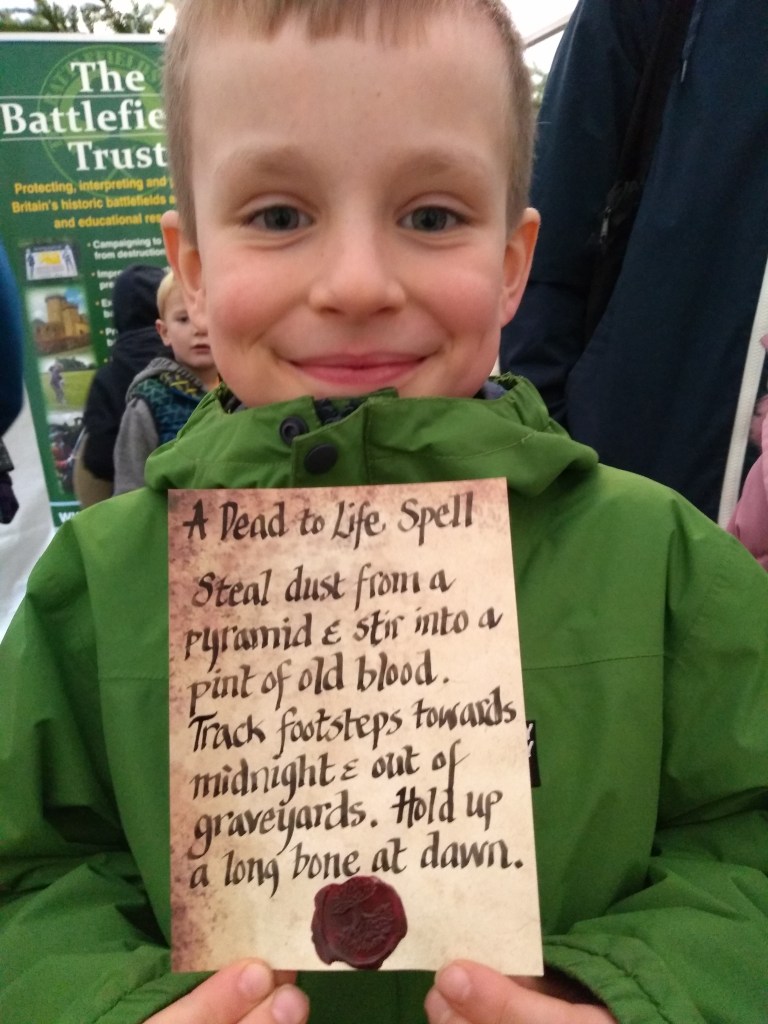 The
Battlefie
Trust
Protecting, interpreting and
Britain's historic battlefields a
and educational res
• Campaigning to
from destruction
A Dead to Life Spell
Steal dust from a
pyramid & stir into a
pint of old blood.
Track footsteps towards
midnight & out of
graveyards. Hold up
a long bone at dawn.